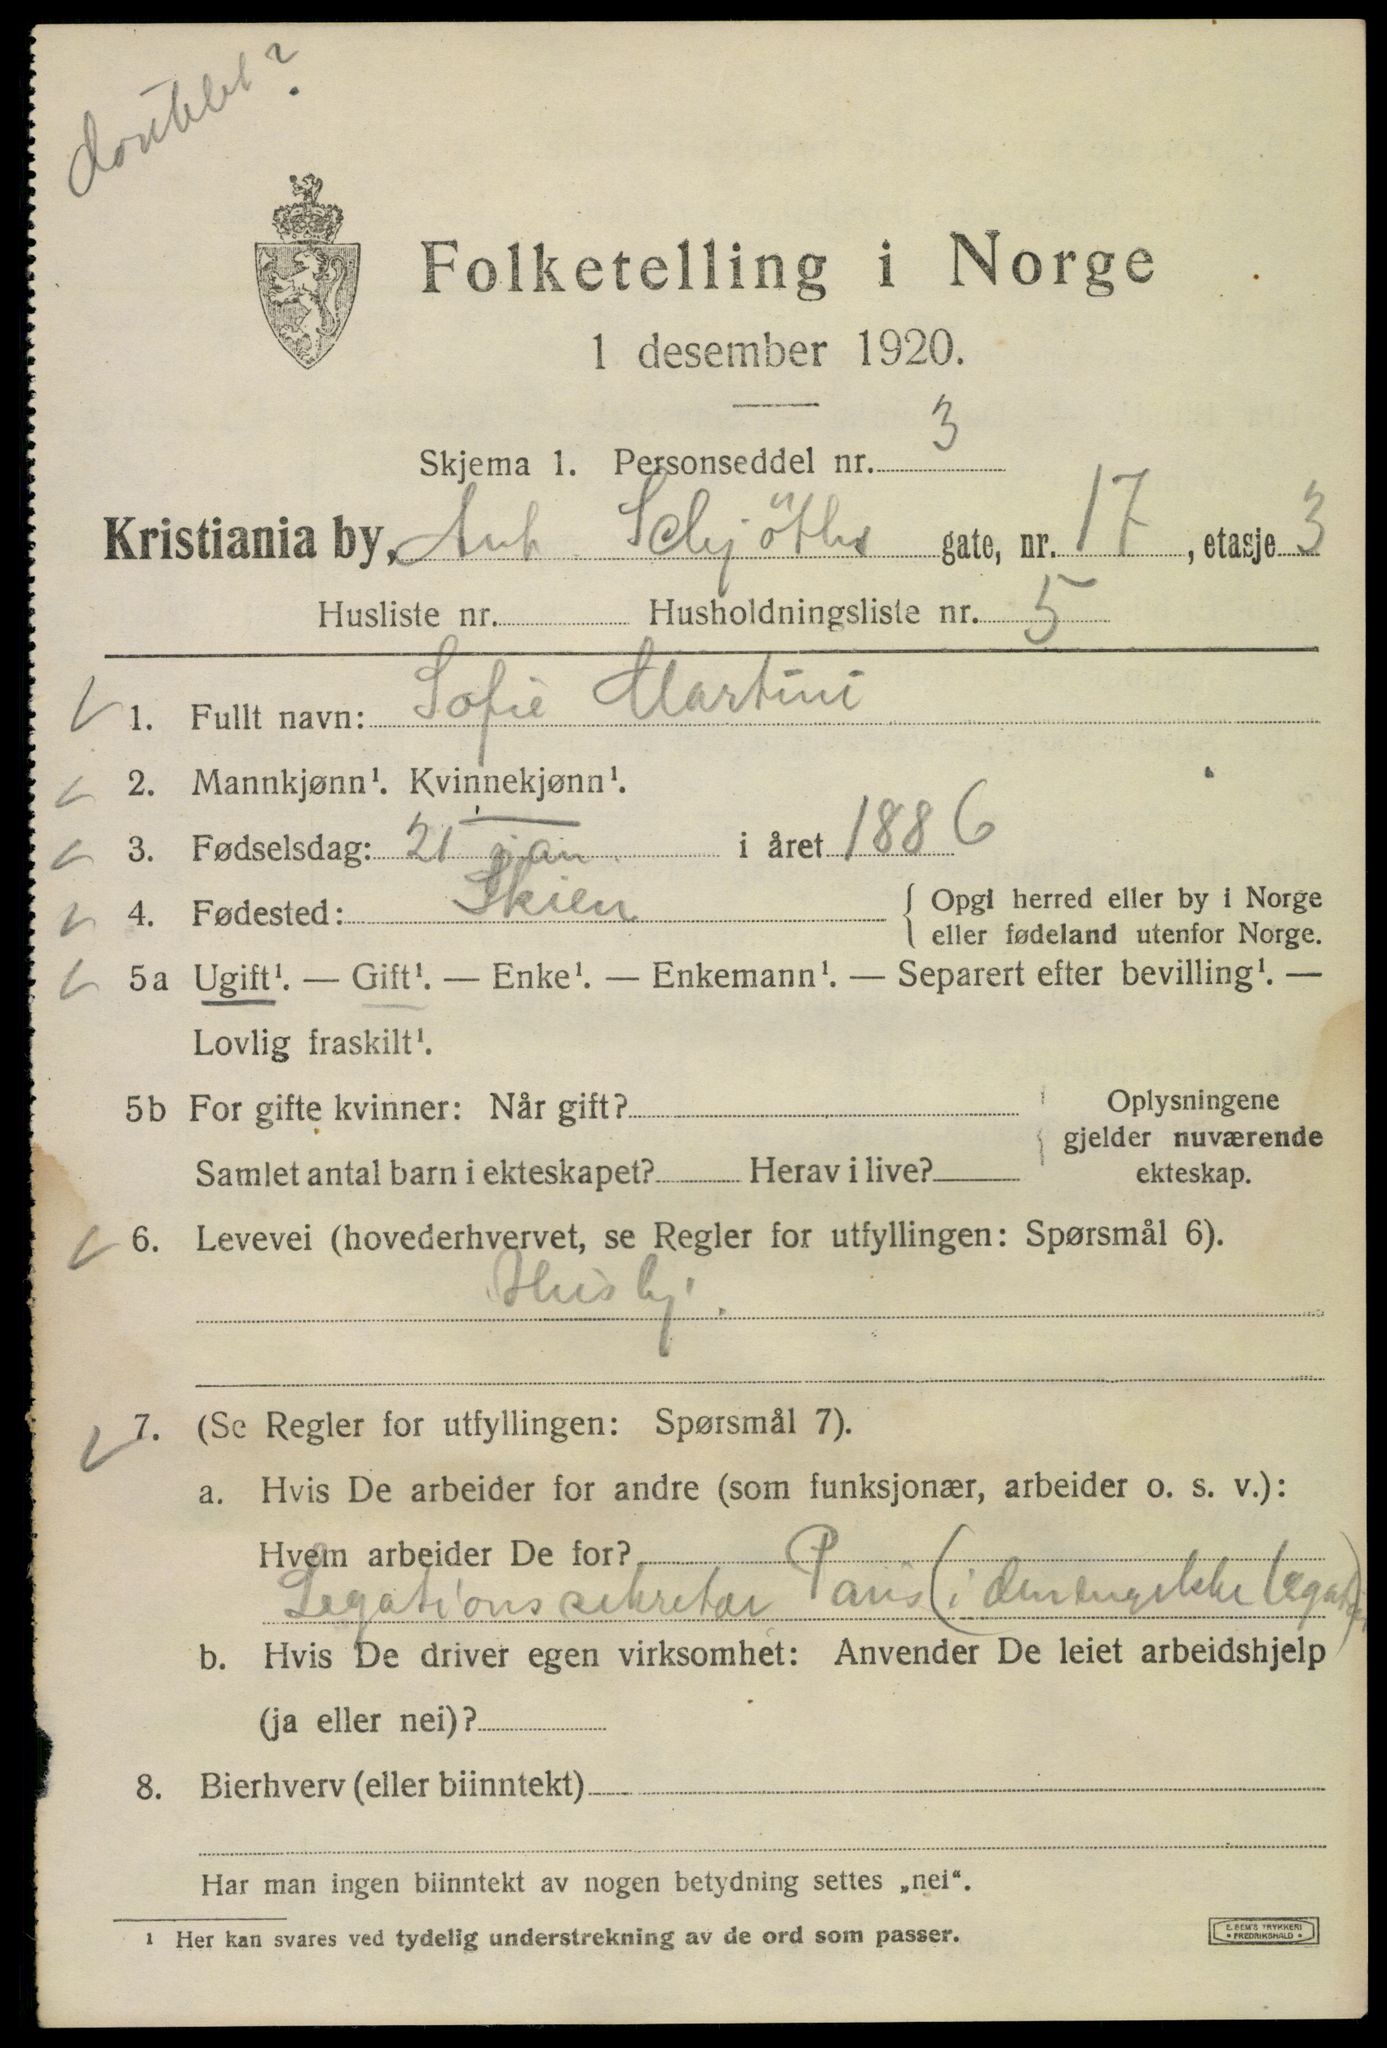 doublet?
Folketelling i Norge
1 desember 1920.
Skjema 1. Personseddel nr. 3
Kristiania by, Ant. Schjöths gate, nr. 17, etasje 3
Husliste nr. Husholdningsliste nr. 5
1. Fullt navn: Sofie Martini
2. Mannkjønn¹. Kvinnekjønn¹.
3. Fødselsdag: 21 jan i året 1886
4. Fødested: Skien { Opgi herred eller by i Norge
eller fødeland utenfor Norge.
5a Ugift¹. — Gift¹. — Enke¹. — Enkemann¹. — Separert efter bevilling¹. —
Lovlig fraskilt¹.
5b For gifte kvinner: Når gift? Oplysningene
gjelder nuværende
Samlet antal barn i ekteskapet? Herav i live? ekteskap.
6. Levevei (hovederhvervet, se Regler for utfyllingen: Spørsmål 6).
Husbj.
7. (Se Regler for utfyllingen: Spørsmål 7).
a. Hvis De arbeider for andre (som funksjonær, arbeider o. s. v.):
Hvem arbeider De for?
Legationssekretær Paris (i den engelske legation)
b. Hvis De driver egen virksomhet: Anvender De leiet arbeidshjelp
(ja eller nei)?
8. Bierhverv (eller biinntekt)
Har man ingen biinntekt av nogen betydning settes „nei“.
¹ Her kan svares ved tydelig understrekning av de ord som passer.
E. SEM'S TRYKKERI
• FREDRIKSHALD •